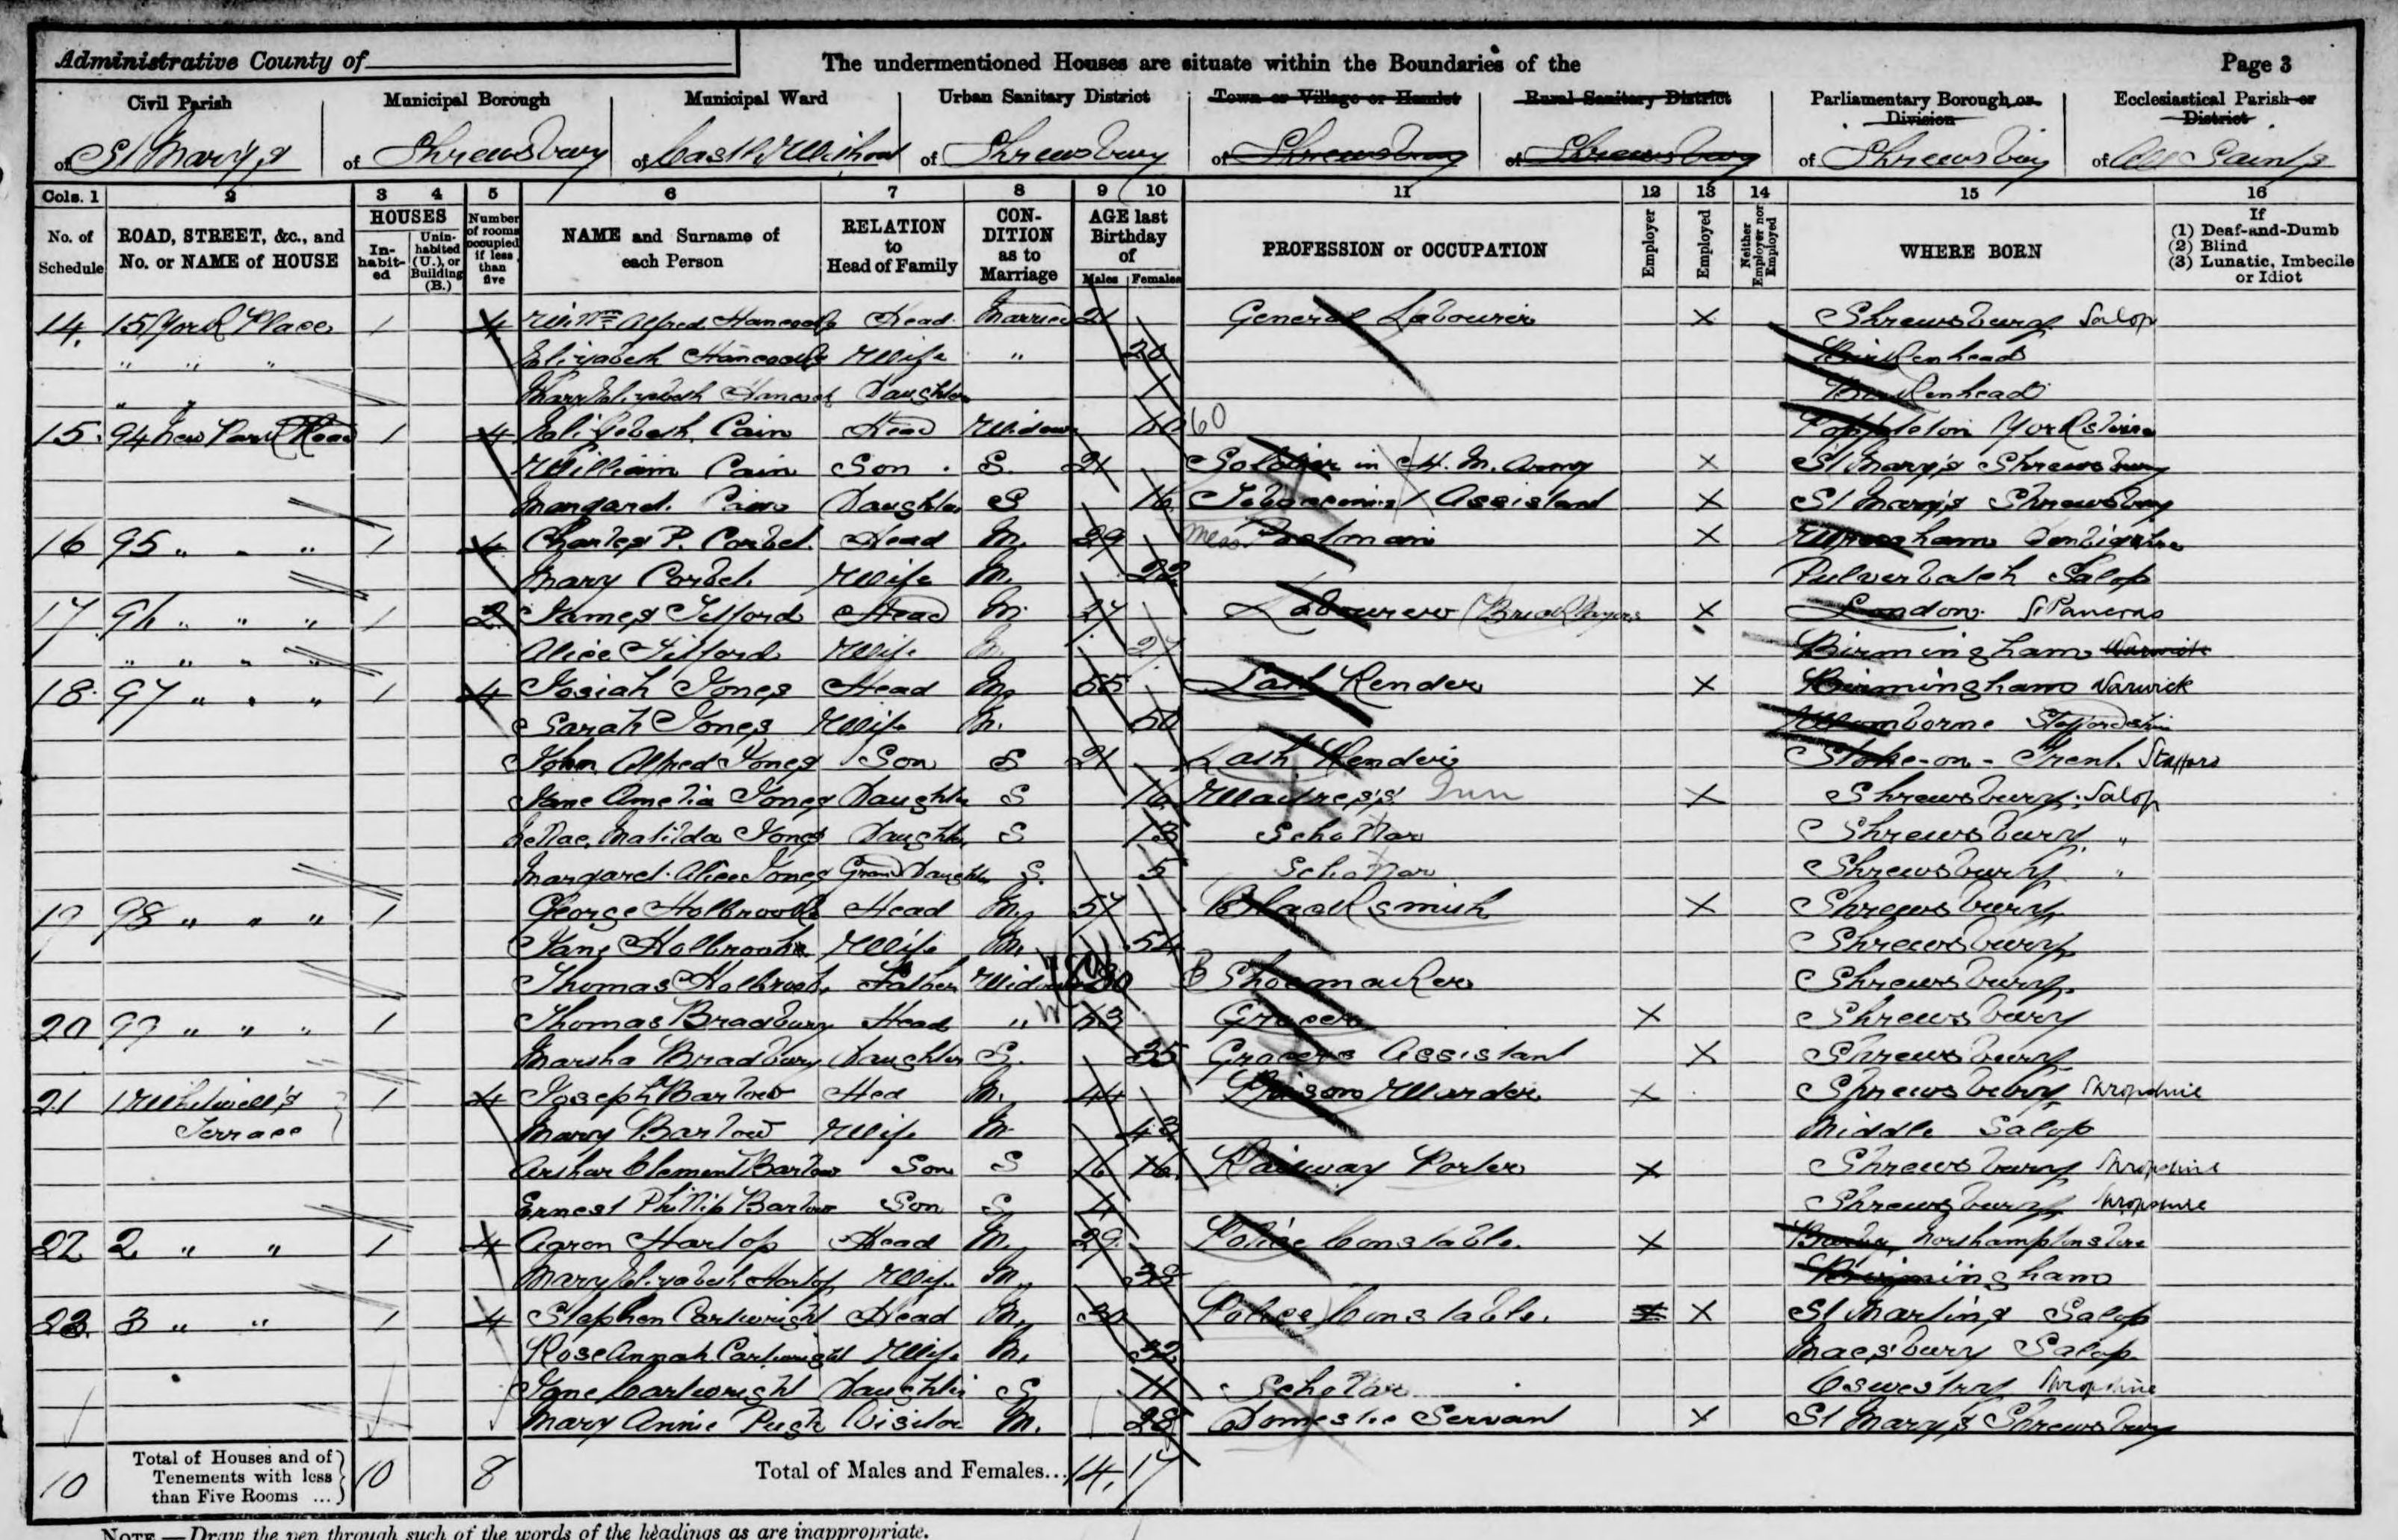 Administrative County of
The undermentioned Houses are situate within the Boundaries of the
Page 3
Civil Parish Municipal Borough Municipal Ward Urban Sanitary District Town or Village or Hamlet Rural Sanitary District Parliamentary Borough or Division Ecclesiastical Parish or District
of St Mary's of Shrewsbury of Castle Within of Shrewsbury of Shrewsbury of Shrewsbury of Shrewsbury of All Saints
Cols. 1 2 3 4 5 6 7 8 9 10 11 12 13 14 15 16
No. of Schedule ROAD, STREET, &c., and No. or NAME of HOUSE HOUSES Inhabited Uninhabited (U.), or Building (B.) Number of rooms occupied if less than five NAME and Surname of each Person RELATION to Head of Family CONDITION as to Marriage AGE last Birthday of Males Females PROFESSION or OCCUPATION Employer Employed Neither Employer nor Employed WHERE BORN If (1) Deaf-and-Dumb (2) Blind (3) Lunatic, Imbecile or Idiot
14. 15 York Place 1 4 Willm Alfred Hancock Head Married 21 General Labourer X Shrewsbury Salop
" " " Elizabeth Hancock Wife " 20 Birkenhead
" " Mary Elizabeth Hancock Daughter 1 Birkenhead
15. 94 New Park Road 1 4 Elizabeth Cain Head Widow 60 60 Poppleton Yorkshire
William Cain Son S. 21 Soldier in H. M. Army X St Mary's Shrewsbury
Margaret Cain Daughter S 16 Tobacconist Assistant X St Mary's Shrewsbury
16 95 " " " 1 4 Charles P. Corbet Head M. 29 Postman X Wrexham Denbigshire
Mary Corbet Wife M. 22 Pulverbatch Salop
17 96 " " " 1 2 James Tilford Head M. 27 Labourer (Bricklayers X London St Pancras
" " " " Alice Tilford Wife M. 27 Birmingham Warwick
18. 97 " " " 1 4 Josiah Jones Head M. 55 Lath Render X Birmingham Warwick
Sarah Jones Wife M. 50 Staffordshire
John Alfred Jones Son S 21 Lath Render Stoke-on-Trent Stafford
Jane Amelia Jones Daughter S 16 Waitress Inn X Shrewsbury Salop
Matilda Jones Daughter S 13 Schollar Shrewsbury "
Margaret Alice Jones Grand Daughter S. 5 Schollar Shrewsbury "
19 98 " " " 1 George Holbrook Head M. 57 Blacksmith X Shrewsbury
Jane Holbrook Wife M. 54 Shrewsbury
Thomas Holbrook Father Widower 80 Shoemaker Shrewsbury
20 99 " " " 1 Thomas Bradbury Head " W 63 Grocer X Shrewsbury
Martha Bradbury Daughter S. 35 Grocers Assistant X Shrewsbury
21 1 Whitwell's 1 4 Joseph Barlow Hed M. 44 Prison Warder X Shrewsbury Shropshire
Terrace Mary Barlow Wife M. 43 Middle Salop
Arthur Clement Barlow Son S 16 16 Railway Porter X Shrewsbury Shropshire
Ernest Phillip Barlow Son S 4 Shrewsbury Shropshire
22 2 " " 1 4 Aaron Harlop Head M. 29 Police Constable. X Northamptonshire
Mary Elizabeth Harlop Wife M. Birmingham
23. 3 " " 1 4 Stephen Cartwright Head M. 30 Police Constable. X X St Martins Salop
Rose Annah Cartwright Wife M. 32 Maesbury Salop
Jane Cartwright Daughter S 11 Schollar Oswestry Shropshire
Mary Annie Pugh Visitor M. 28 Domestic Servant X St Mary's Shrewsbury
10 Total of Houses and of Tenements with less than Five Rooms ... 10 8 Total of Males and Females... 14 17
NOTE.—Draw the pen through such of the words of the headings as are inappropriate.